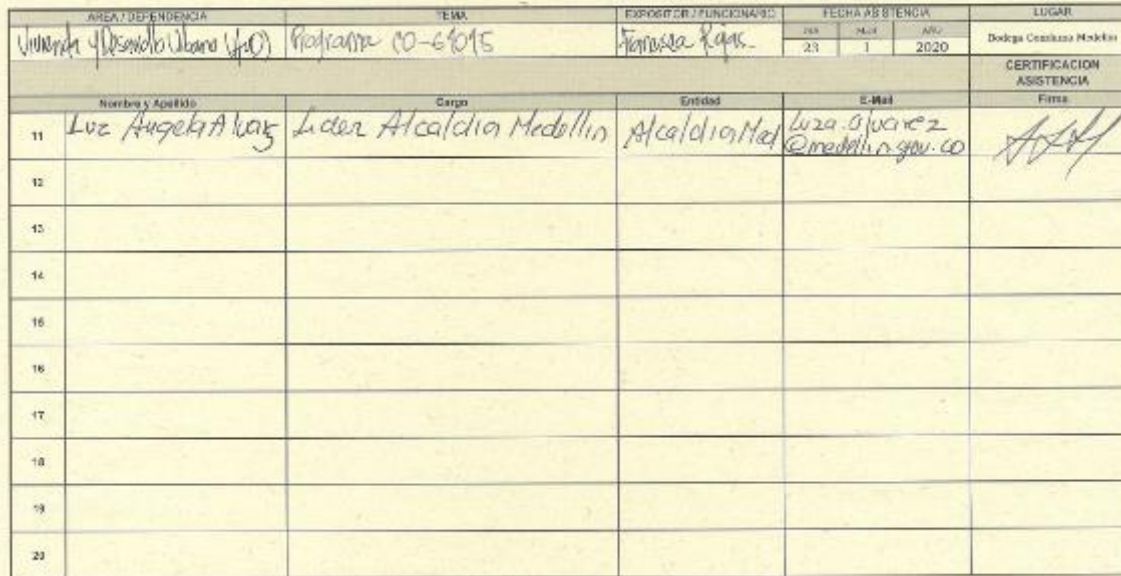 AREA / DEPENDENCIA TEMA EXPOSITOR / FUNCIONARIO FECHA ASISTENCIA LUGAR
Vivienda y Desarrollo Urbano Programa CO- Rojas. DIA MES AÑO
23 1 2020 Bodega Medellin
CERTIFICACION
ASISTENCIA
Nombre y Apellido Cargo Entidad E-Mail Firma
11 Luz Angela Alvarez Lider Alcaldia Medellin Alcaldia Med luza.alvarez
@medellin.gov.co
12
13
14
15
16
17
18
19
20